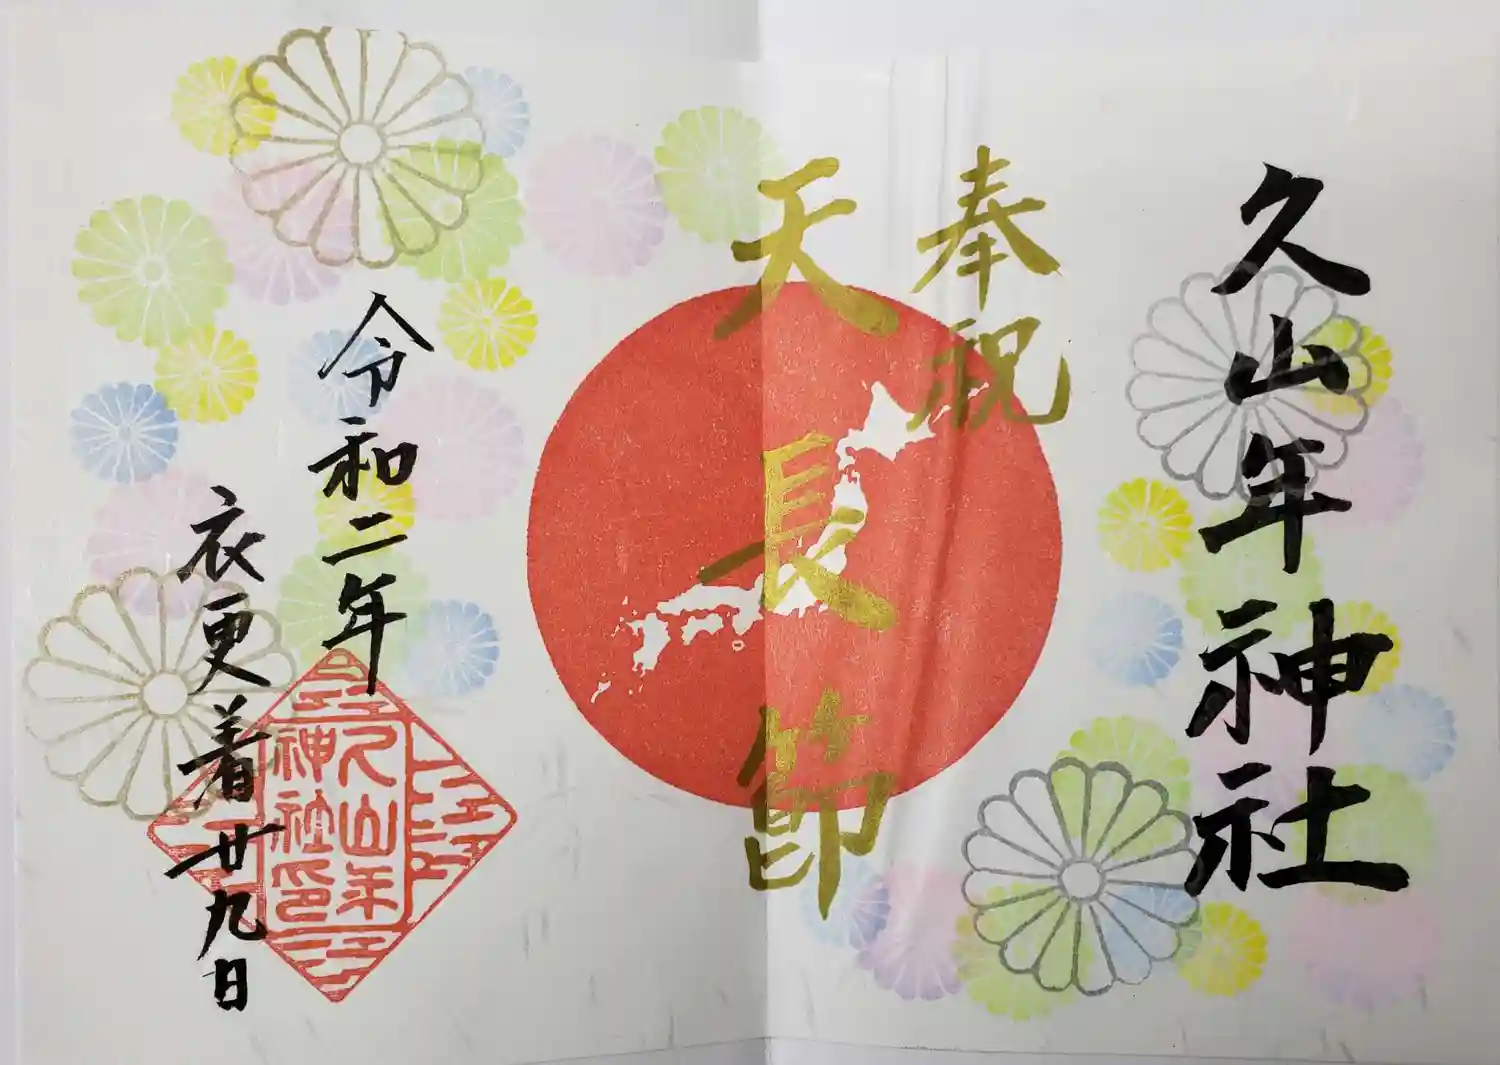 久山年神社
奉祝
天長節
令和二年
衣更着廿九日
久山年
神社印